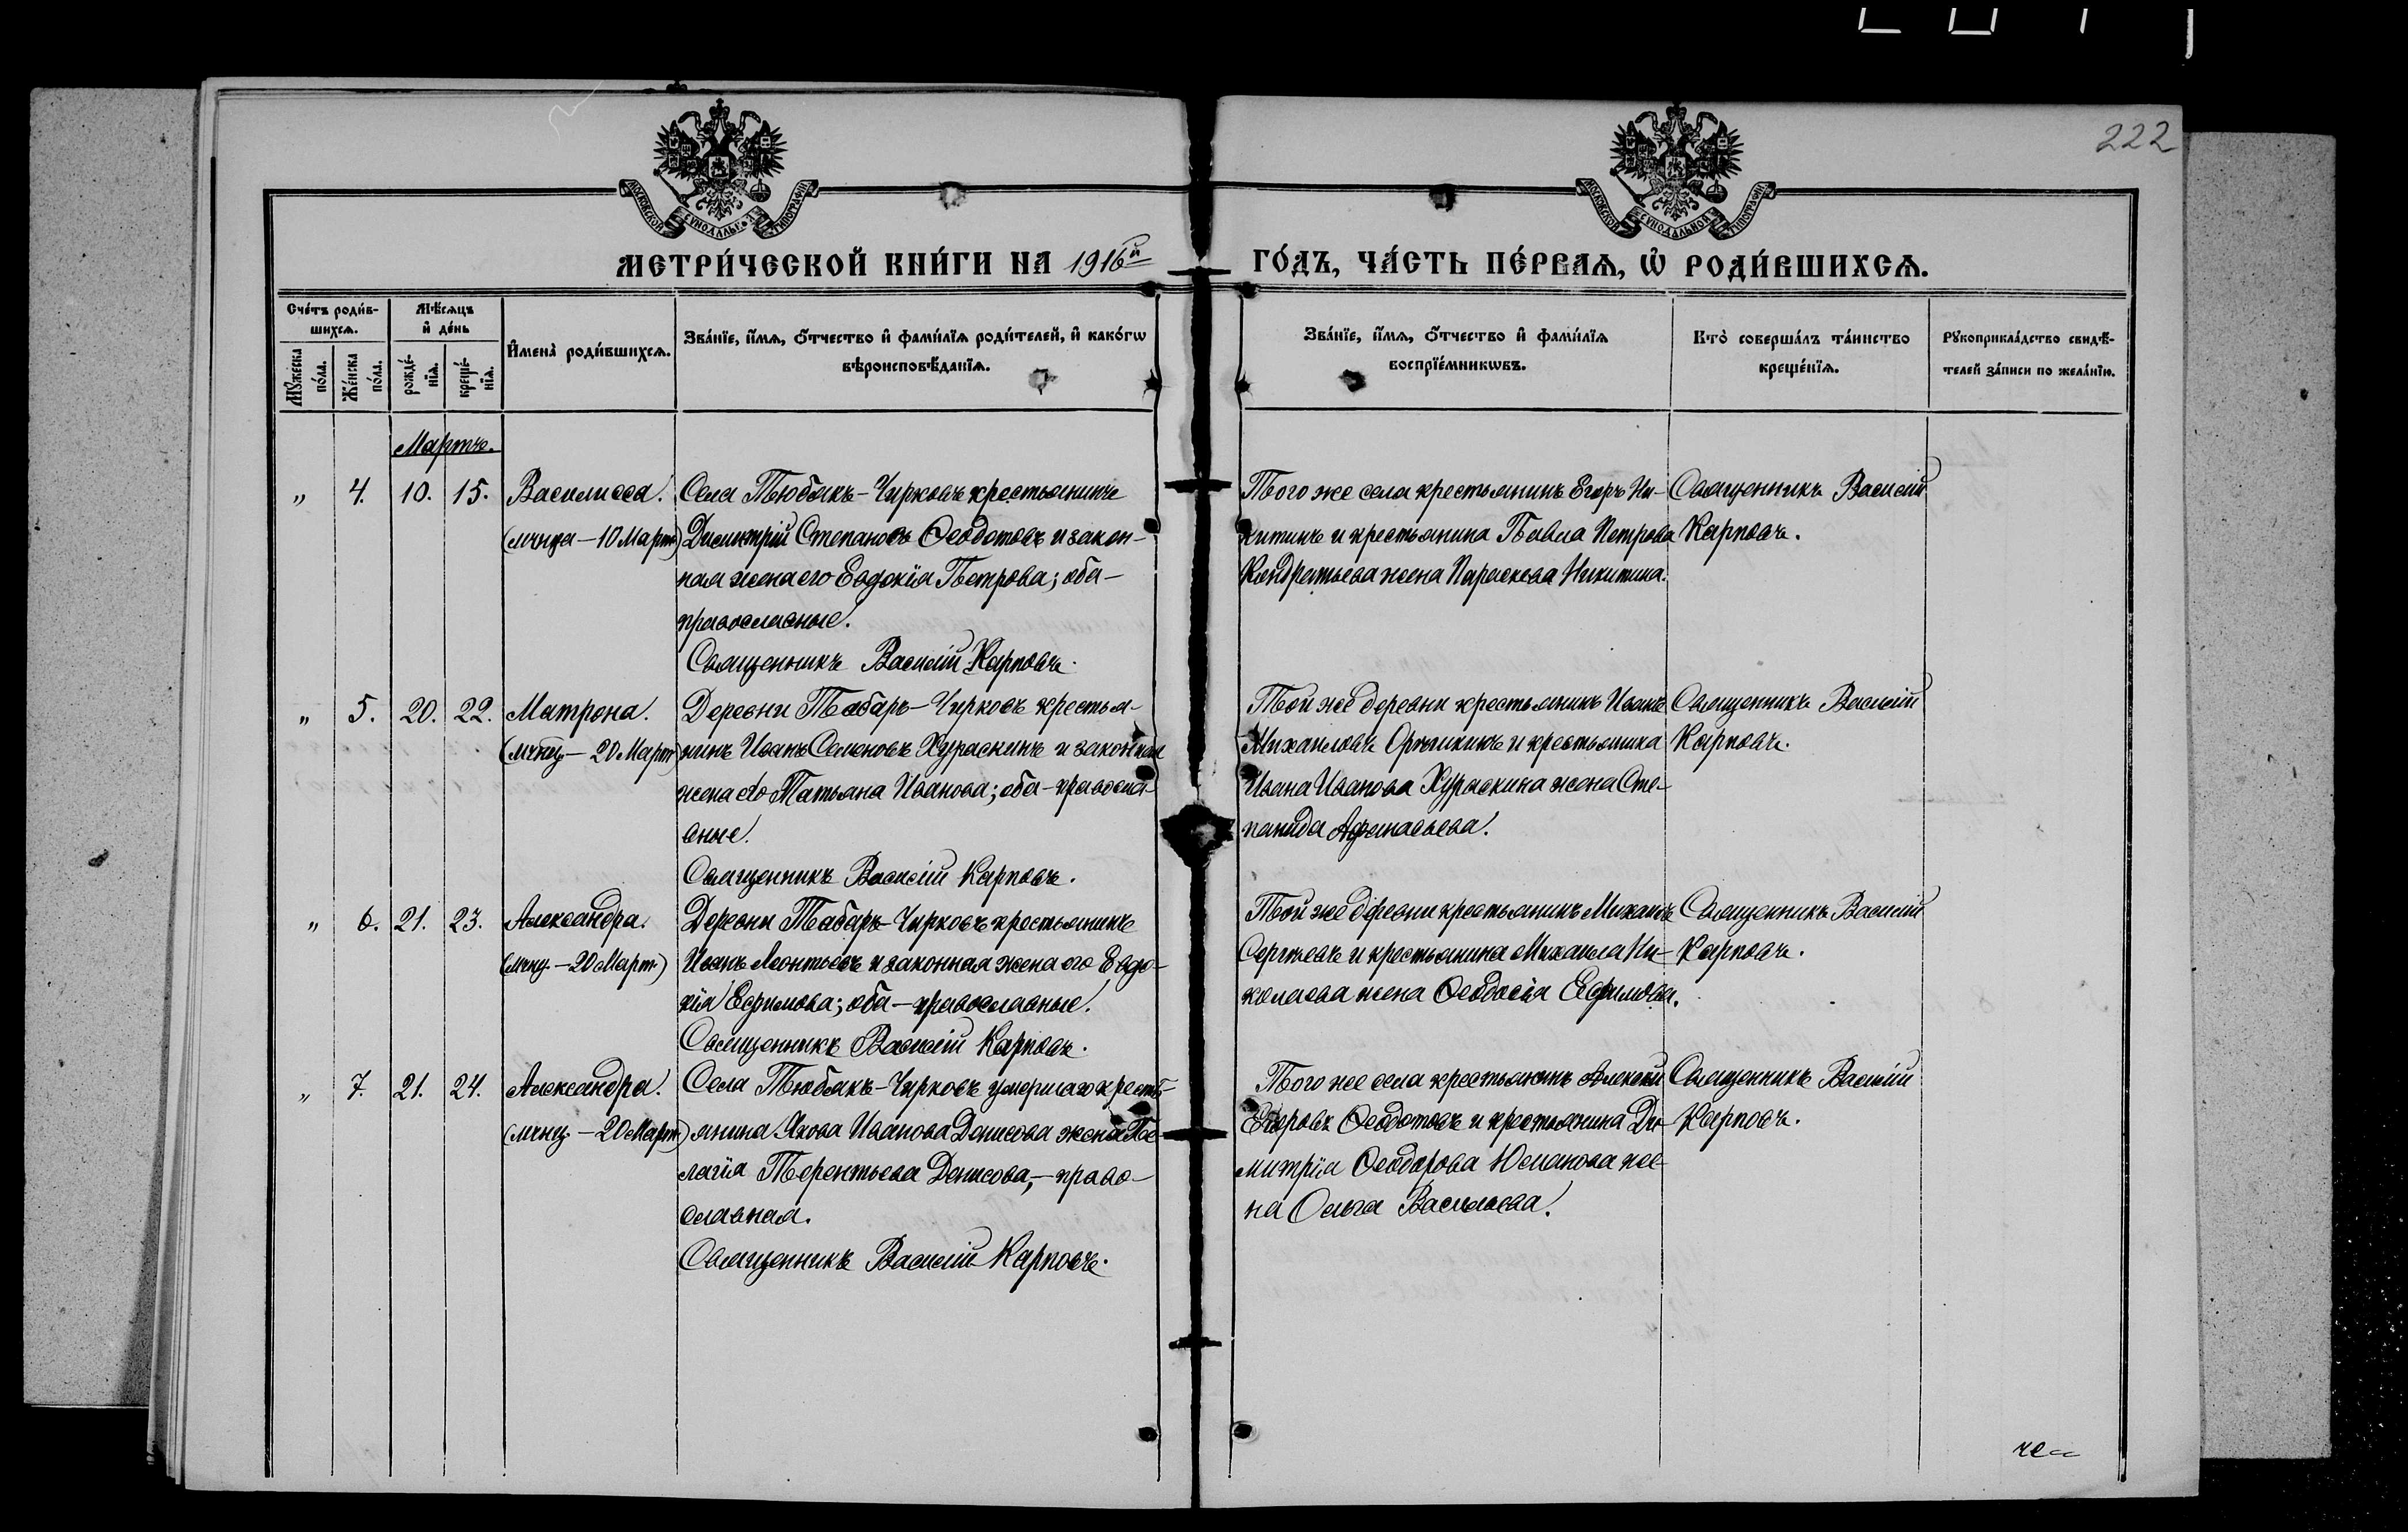 222
МОСКОВСКОЙ СѴНОДАЛЬНОЙ ТИПОГРАФІИ
МОСКОВСКОЙ СѴНОДАЛЬНОЙ ТИПОГРАФІИ
МЕТРИ́ЧЕСКОЙ КНИ́ГИ НА 1916й ГО́ДЪ, ЧА́СТЬ ПЕ́РВАѦ, Ѡ҆ РОДИ́ВШИХСѦ.
Сче́тъ роди́в-
шихсѧ.
Мꙋ́жеска по́ла.
Же́нска по́ла.
Мѣ́сѧцъ
и҆ де́нь
рожде́-
нїѧ.
креще́-
нїѧ.
И҆мена̀ роди́вшихсѧ.
Зва́нїе, и҆́мѧ, ѻ҆́тчество и҆ фами́лїѧ роди́телей, и҆ како́гѡ
вѣроисповѣ́данїѧ.
Зва́нїе, и҆́мѧ, ѻ҆́тчество и҆ фами́лїѧ
воспрїе́мникѡвъ.
Кто̀ соверша́лъ та́инство
креще́нїѧ.
Рꙋкоприкла́дство свидѣ́-
телей за́писи по жела́нїю.
Мартъ.
" 4. 10. 15. Василисса. Села Тюбякъ-Чирковъ крестьянинъ
(мчнца – 10 Март.) Димитрій Степановъ Ѳеодотовъ и закон-
ная жена его Евдокія Петрова; оба –
православные.
Священникъ Василій Карповъ.
Того же села крестьянинъ Егоръ Ни-
китинъ и крестьянина Павла Петрова
Кондратьева жена Параскева Никитина.
Священникъ Василій
Карповъ.
" 5. 20. 22. Матрона. Деревни Табаръ-Чирковъ крестья-
(мчнц. – 20 Март.) нинъ Иванъ Семеновъ Хураскинъ и законная
жена его Татьяна Иванова; оба – правосла-
вные.
Священникъ Василій Карповъ.
Той же деревни крестьянинъ Иванъ
Михаиловъ и крестьянина
Ивана Иванова Хураскина жена Сте-
панида Афанасьева.
Священникъ Василій
Карповъ.
" 6. 21. 23. Александра. Деревни Табаръ-Чирковъ крестьянинъ
(мчнц. – 20 Март.) Иванъ Леонтьевъ и законная жена его Евдо-
кія Ефимова; оба – православные.
Священникъ Василій Карповъ.
Той же деревни крестьянинъ Михаилъ
Сергѣевъ и крестьянина Михаила Ни-
колаева жена Ѳеодосія Ефимова.
Священникъ Василій
Карповъ.
" 7. 21. 24. Александра. Села Тюбякъ-Чирковъ умершаго кресть-
(мчнц. – 20 Март.) янина Якова Иванова Денисова жена Пе-
лагія Терентьева Денисова, – право-
славная.
Священникъ Василій Карповъ.
Того же села крестьянинъ Алексѣй
Егоровъ Ѳеодотовъ и крестьянина Ди-
митрія Ѳеодорова Юсманова же-
на Ольга Васильева.
Священникъ Василій
Карповъ.